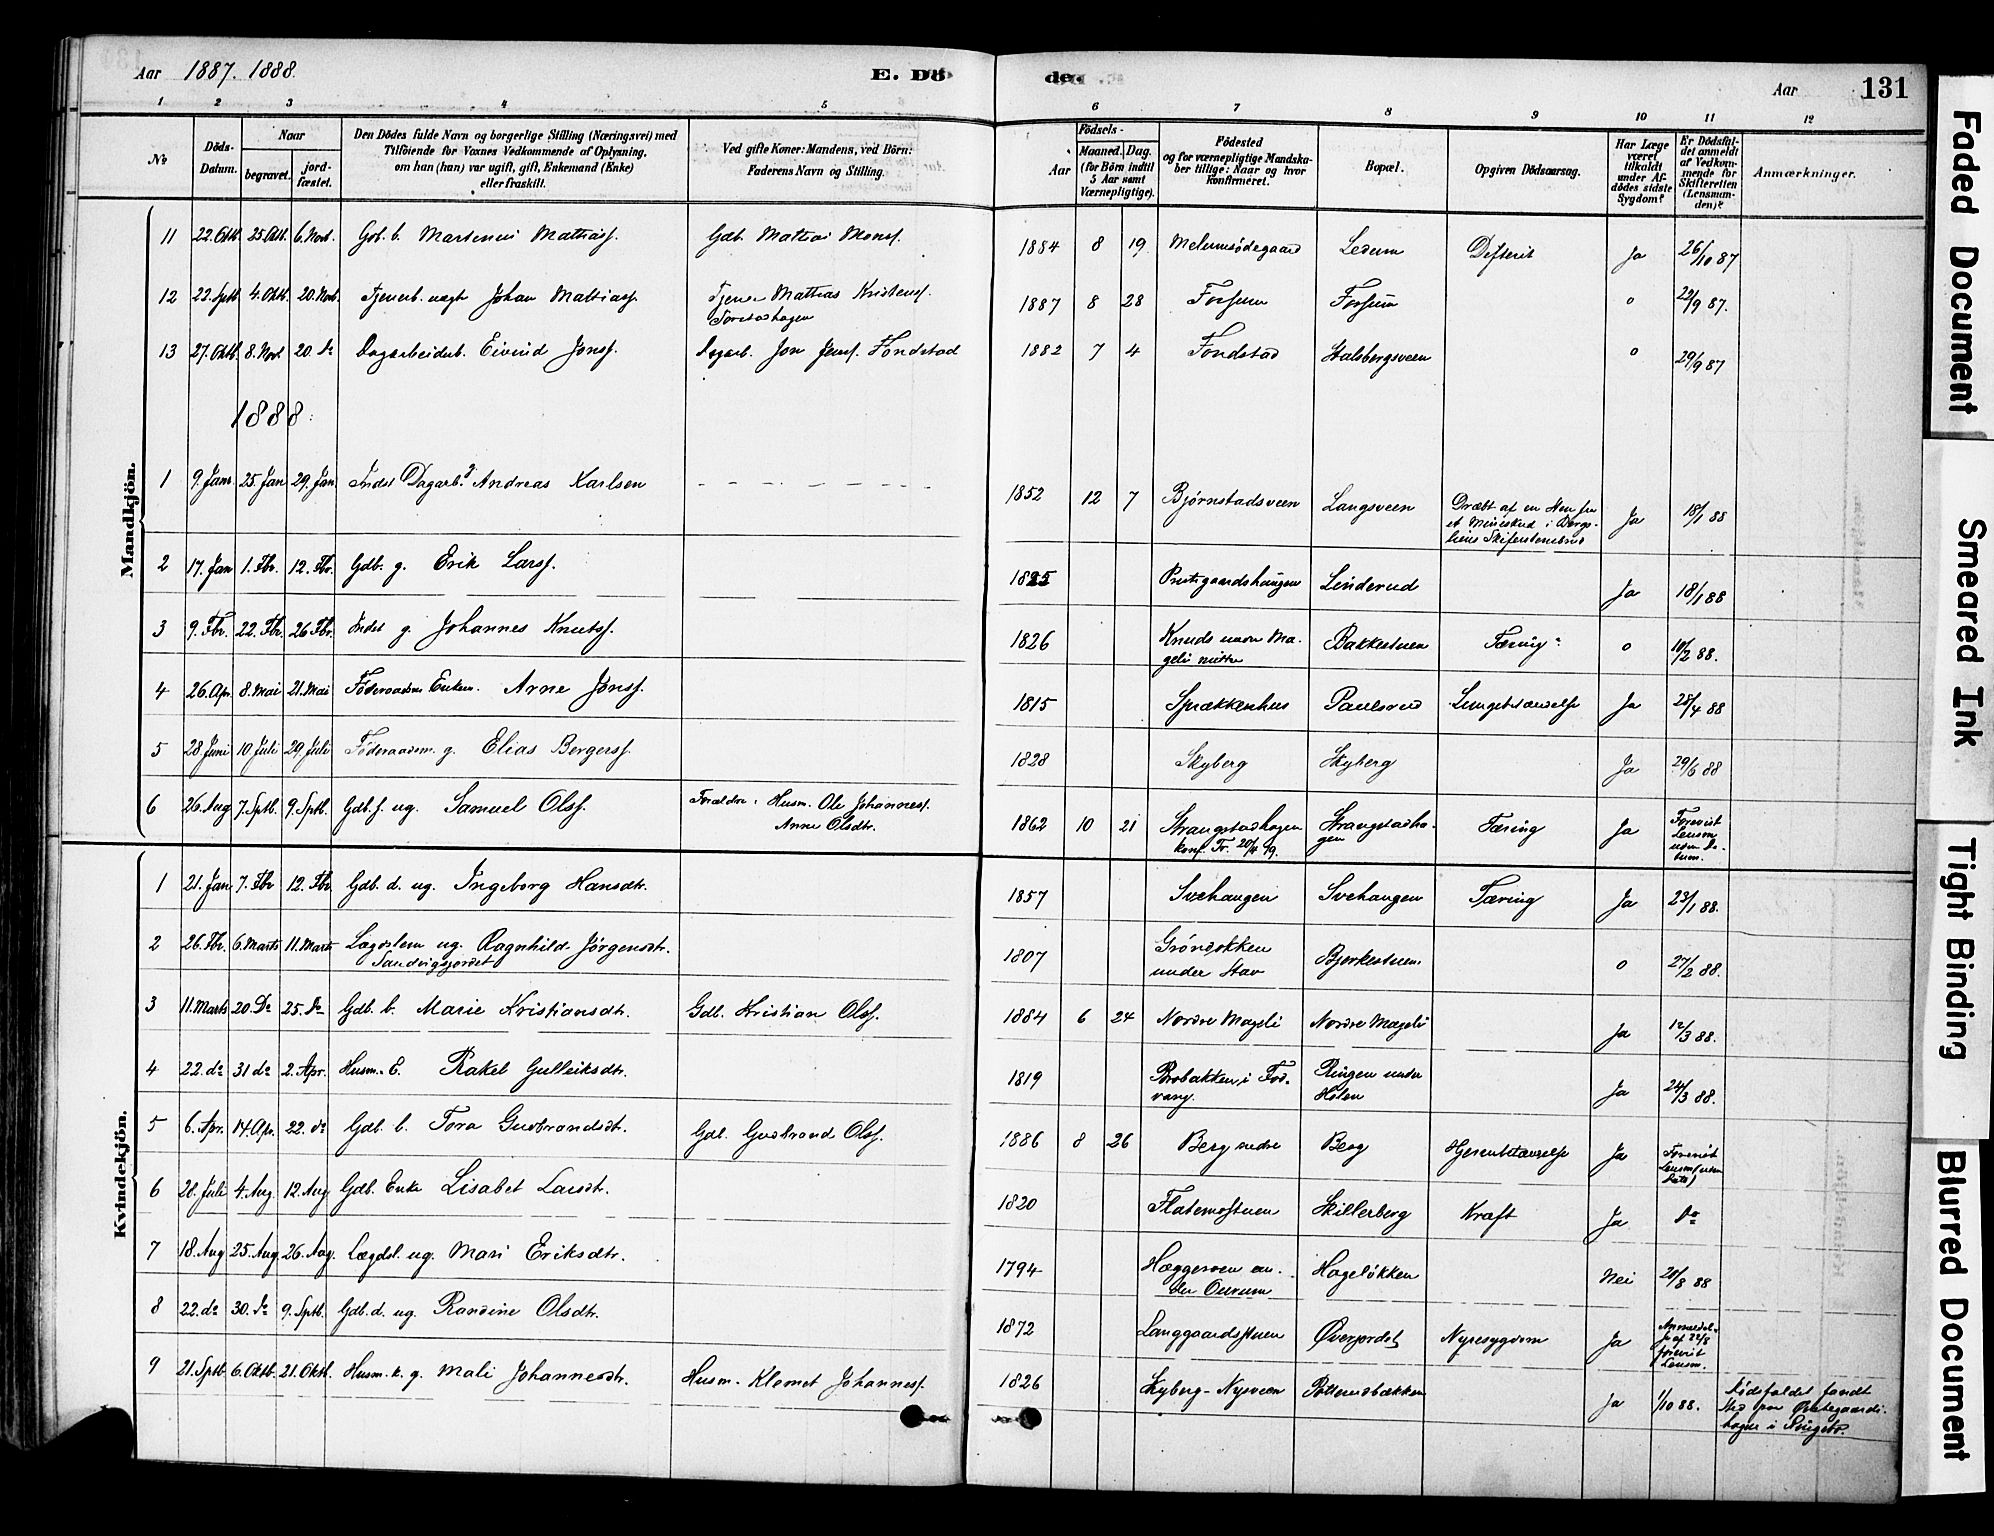 Aar 1887. 1888. E. Dö de. Aar 131
1 2 3 4 5 6 7 8 9 10 11 12
No
Döds-Datum.
Naar
begravet.
jord-fæstet.
Den Dödes fulde Navn og borgerlige Stilling (Næringsvei) med
Tilföiende for Voxnes Vedkommende af Oplysning,
om han (hun) var ugift, gift, Enkemand (Enke)
eller fraskilt.
Ved gifte Koner: Mandens, ved Börn:
Faderens Navn og Stilling.
Aar
Födsels-
Maaned. Dag.
(for Börn indtil
5 Aar samt
Værnepligtige).
Födested
og for værnepligtige Mandska-
ber tillige: Naar og hvor
konfirmeret.
Bopæl.
Opgiven Dödsaarsag.
Har Læge
været
tilkaldt
under Af-
dödes sidste
Sygdom?
Er Dödsfal-
det anmeldt
af Vedkom-
mende for
Skifteretten
(Lensman-
den)?
Anmærkninger.
Mandkjön.
11 22. Oktb. 25. Oktb. 6. Novb. Gdb. b. Martenius Mathiass. Gdb. Mathias Monss. 1884 8 19 Melumsödegaard Ledum Defterit Ja 26/10 87
12 22. Sptb. 4. Oktb. 20. Novb. Tjenerb. uægt Johan Mathiass. Tjener Mathias Kristenss. 1887 8 28 Forsum Forsum o 22/9 87.
13 27. Oktb. 8. Nov. 20. do Dagarbeiderb. Eivind Jonss. Dagarb. Jon Jenss. Fondstad 1882 7 4 Fondstad Stalsbergsveen o 29/9 87
1888.
1 9. Janr. 25. Jan 29. Jan Indst Dagarb. g Andreas Karlsen 1852 12 7 Bjørnstadsveen Langsveen Dræbt af en Sten fra
et Mineskud i Bergs-
liens Skiferstensbrud Ja 18/1 88
2 17. Jan 1. Fbr. 12. Fbr. Gdb. g. Erik Larss. 1825 Prestgaardshaugen Linderud Ja 18/1 88
3 9. Fbr. 22. Fbr. 26 Fbr. Indst g. Johannes Knutss. 1826 Bakkestuen Tæring o 10/2 88.
4 26. Apr. 8. Mai 21. Mai Föderaadsm. Enkem. Arne Jonss. 1815 Sprækkenhus Paulsrud Lungebetændelse Ja 28/4 88
5 28 Juni 10 Juli 29 Juli Föderaadsm. g. Elias Bergerss. 1828 Skyberg Skyberg Ja 29/6 88
6 26. Aug 7. Sptb. 9. Sptb. Gdb. s. ug. Samuel Olss. Forældre: Husm. Ole Johanness.
Anne Olsdtr. 1862 10 21 Strangstadhagen
konf. Fr. 20/4 79. Strangstadha-
gen Tæring Ja
Kvindekjön.
1 21. Jan 7. Fbr 12. Fbr Gdb. d. ug. Ingeborg Hansdtr. 1857 Svehaugen Svehaugen Tæring Ja 23/1 88.
2 26. Fbr. 6. Marts 11. Marts Lægdslem ug. Ragnhild Jörgensdtr.
Sandvigsjordet 1807 Grönlökken
under Stav Bjerkestuen. o 27/2 88.
3 11. Marts 20. Do 25. do Gdb. b. Marie Kristiansdtr. Gdb. Kristian Olss. 1884 6 24 Nordre Mageli Nordre Mageli Ja 12/3 88.
4 22. do 31 do 2. Apr. Husm. E. Rakel Gulleiksdtr. 1819 Brobakken i Fod-
vang. Ringen under
Holen Ja 24/3 88.
5 6. Apr. 14. Apr. 22. do Gdb. b. Tora Gudbrandsdtr. Gdb. Gudbrand Olss. 1886 8 26 Berg nedre Berg Hjernebetændelse Ja
6 28. Juli 4. Aug. 12. Aug Gdb. Enke Lisabet Larsdtr. 1820 Flatemostuen Skillerberg Kræft Ja do
7 18. Aug 25. Aug 26. Aug. Lægdsl. ug. Mari Eriksdtr. 1794 Hæggerven un-
der Ourum Hageløkken Nei 20/8 88
8 22. do 30. do 9. Sptb. Gdb. d. ug. Randine Olsdtr. 1872 Langgaardsstuen Øverjordet Nyresygdom Ja
9 21. Sptb 6. Oktb. 21. Oktb. Husm. k. g. Mali Johannesdtr. Husm. Klemet Johanness. 1826 Skyberg-Nysveen Pottenusbækken Ja 1/10 88. Dödsfaldet fandt
Faded Document
Smeared Ink
Tight Binding
Blurred Document